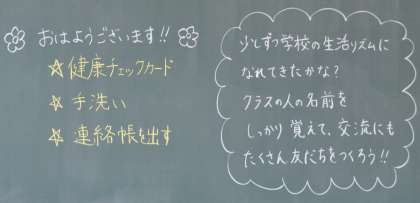 おはようございます!!
☆健康チェックカード
☆手洗い
☆連絡帳を出す
少しずつ学校の生活リズムに
なれてきたかな?
クラスの人の名前を
しっかり覚えて、交流にも
たくさん友だちをつくろう!!